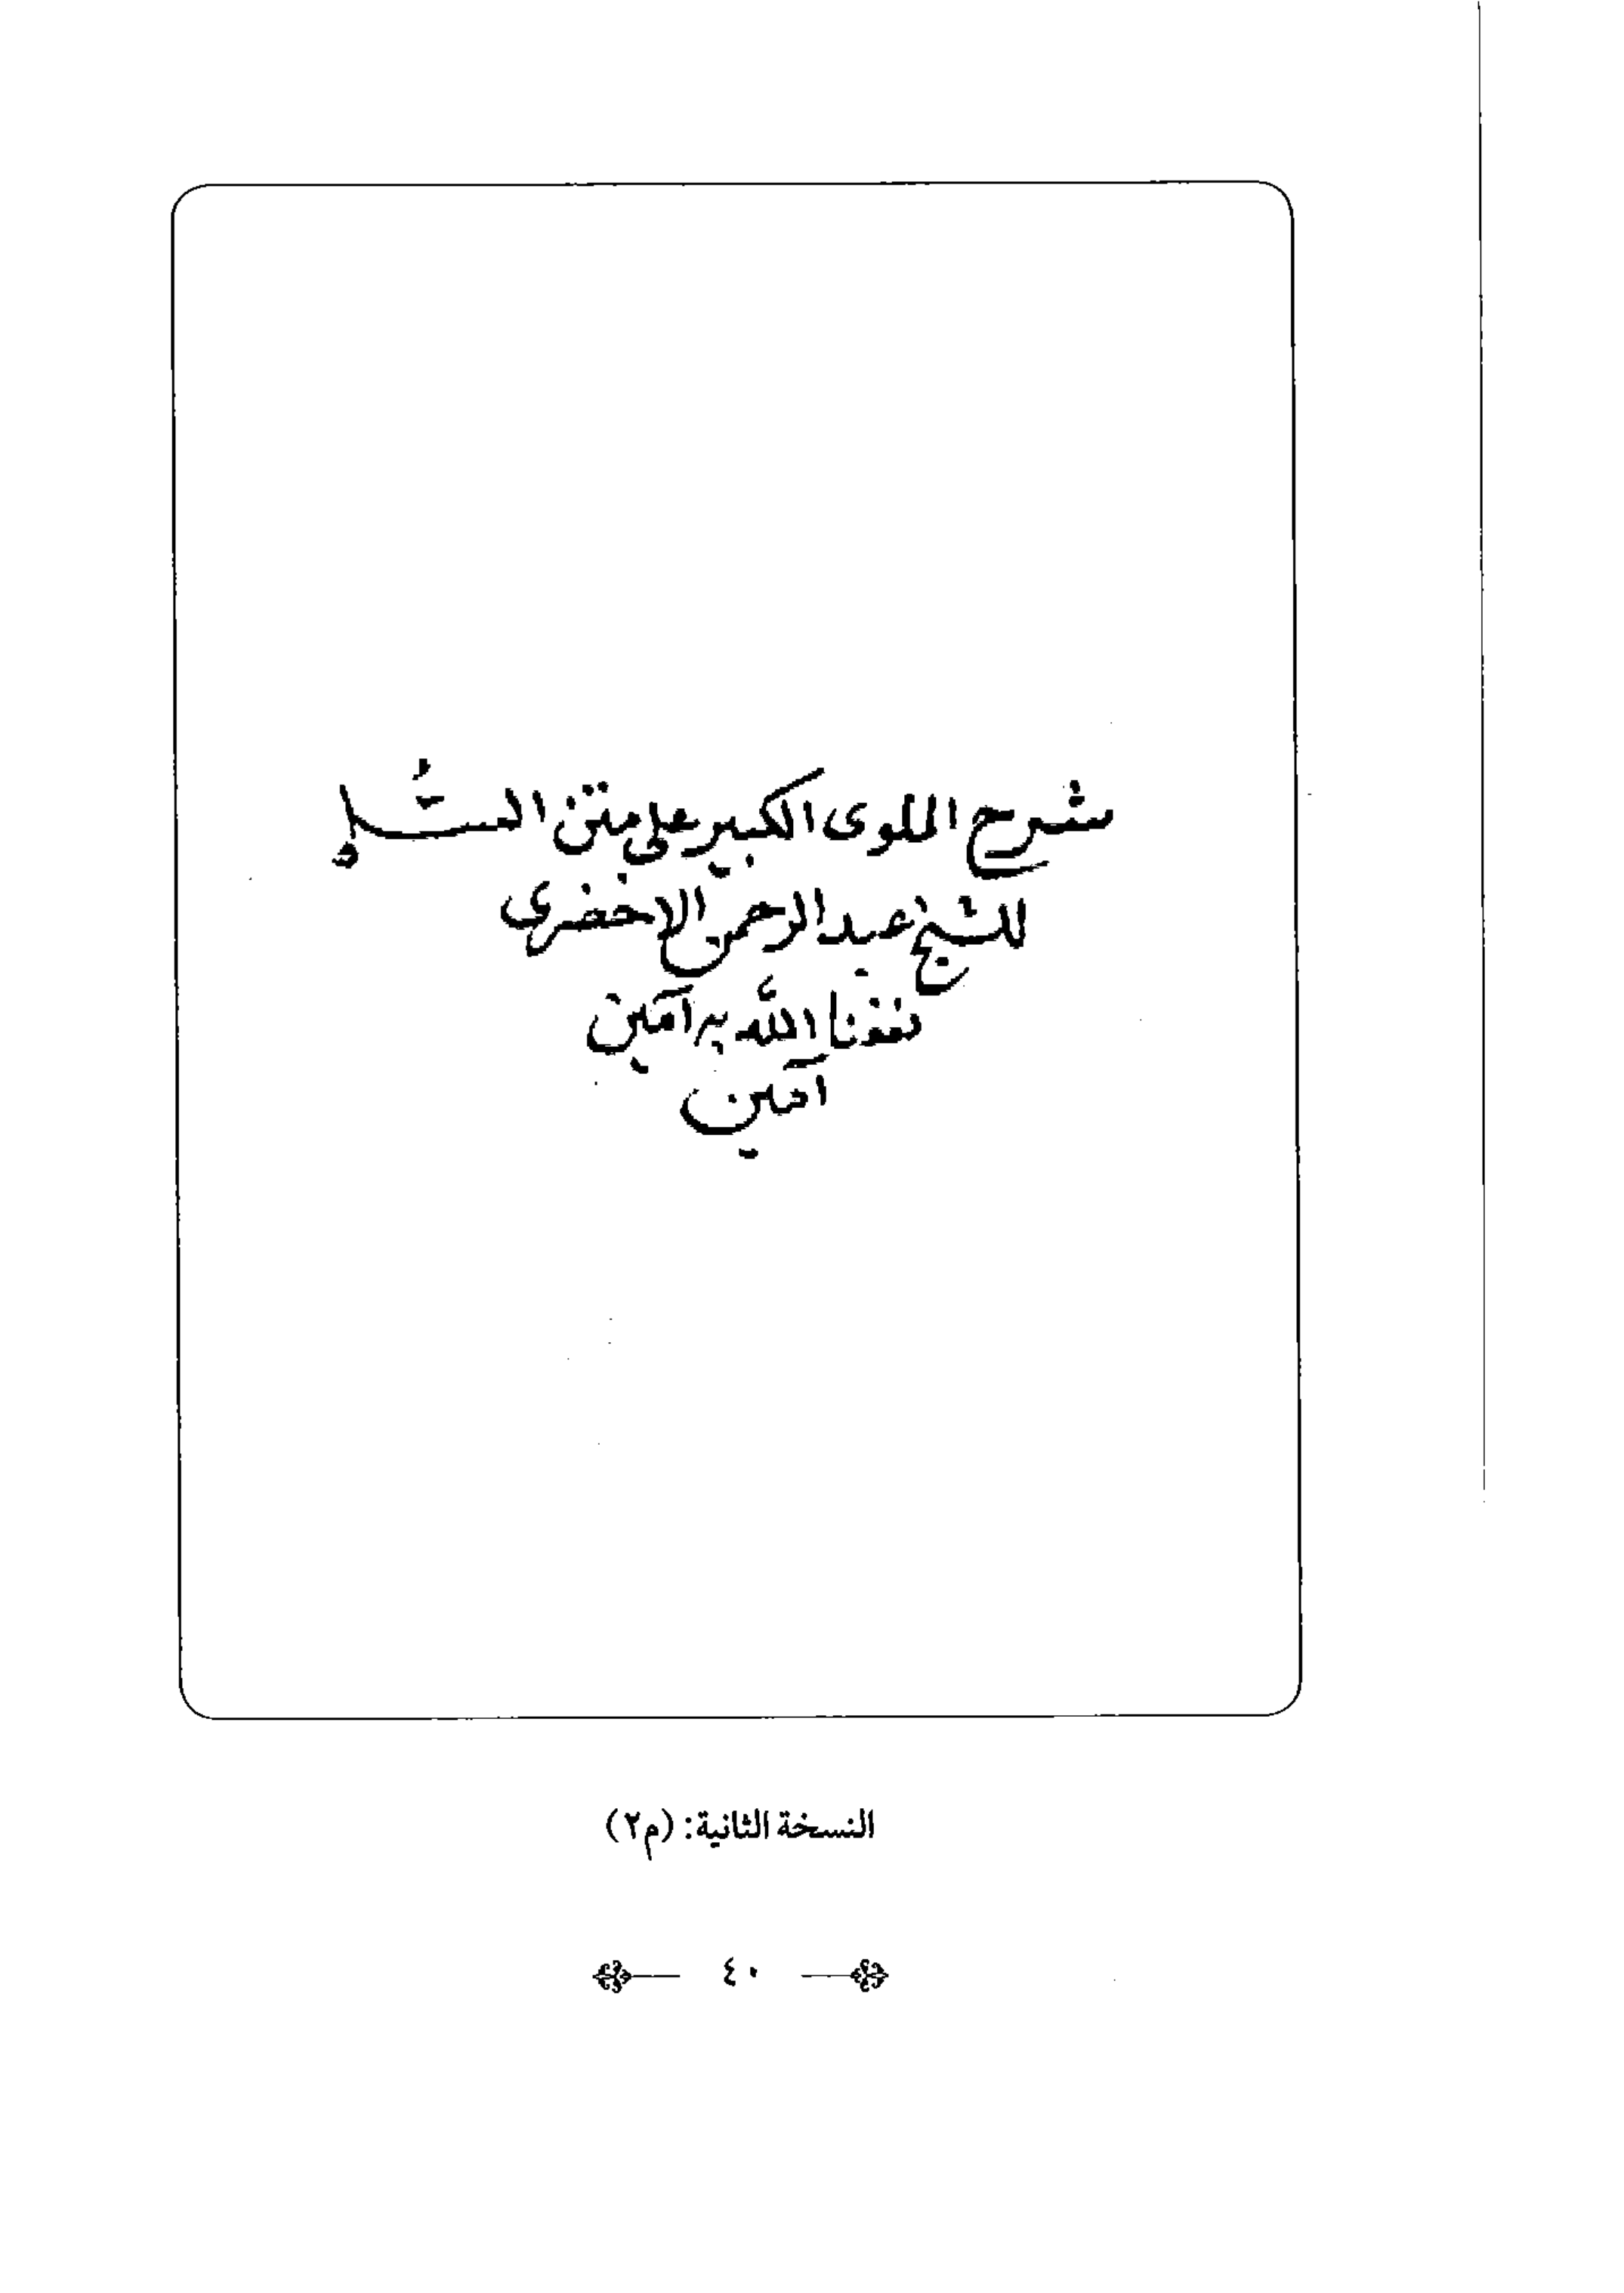 شرح الملوى الكبير على متن السُّلم
للشيخ عبد الرحمن الاخضرى
نفعنا الله به امين
آمين
النسخة الثانية: (م٢)
٤٠